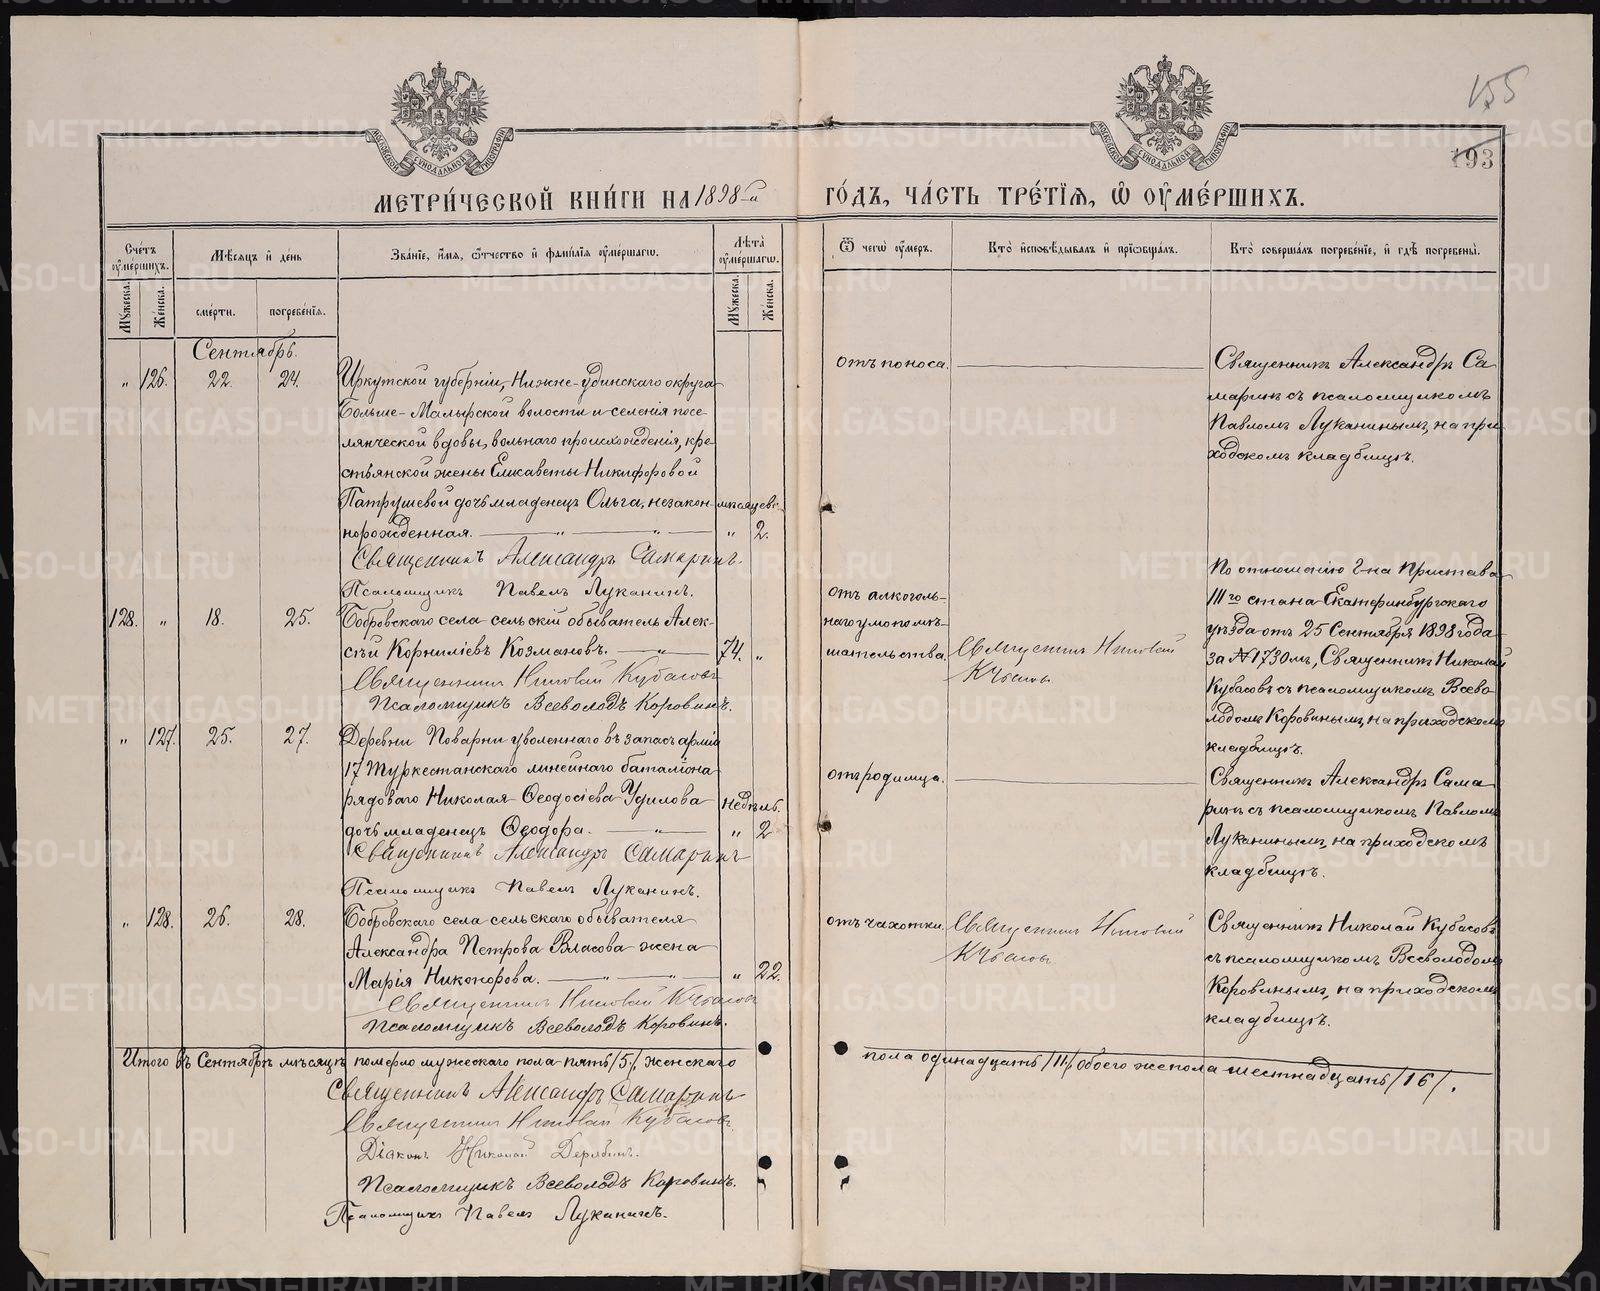 155
193
МЕТРИ́ЧЕСКОЙ КНИ́ГИ НА 1898-й
ГО́ДЪ, ЧА́СТЬ ТРЕ́ТІѦ, Ѡ ОУМЕ́РШИХЪ.
Счетъ оумершихъ.
Мужеска.
Женска.
Мѣсяцъ и день
смерти.
погребенія.
Званіе, имя, отчество и фамилія оумершагѡ.
Лѣта оумершагѡ.
Мужеска.
Женска.
Ѿ чегѡ оумеръ.
Кто исповѣдывалъ и прїобщалъ.
Кто совершалъ погребеніе, и гдѣ погребены.
Сентябрь.
" 126. 22. 24.
Иркутской губерніи, Нижне-Удинскаго округа
Больше-Малырской волости и селенія посе-
лянческой вдовы, вольнаго происхожденія, кре-
стьянской жены Елисаветы Никифоровой
Патрушевой дочь младенецъ Ольга, незакон-
норожденная. — " — " —
мѣсяцевъ
" 2.
отъ поноса.
Священникъ Александръ Са-
маринъ съ псаломщикомъ
Павломъ Луканинымъ, на при-
ходскомъ кладбищѣ.
Священникъ Александръ Самаринъ.
Псаломщикъ Павелъ Луканинъ.
128. " 18. 25.
Бобровскаго села сельскій обыватель Алек-
сѣй Корниліевъ Козмановъ. — " —
74. "
отъ алкоголь-
наго умопомѣ-
шательства.
Священникъ Николай
Кубасовъ
По отношенію г-на Пристава
III го стана Екатеринбургскаго
уѣзда отъ 25 Сентября 1898 года
за № 1730мъ, Священникъ Николай
Кубасовъ съ псаломщикомъ Всево-
лодомъ Коровинымъ, на приходскомъ
кладбищѣ.
Священникъ Николай Кубасовъ
Псаломщикъ Всеволодъ Коровинъ.
" 127. 25. 27.
Деревни Поварни уволеннаго въ запасъ арміи
17 Туркестанскаго линейнаго баталіона
рядоваго Николая Ѳеодосіева Удилова
дочь младенецъ Ѳеодора. — " —
недѣль.
" 2
отъ родимца.
Священникъ Александръ Сама-
ринъ съ псаломщикомъ Павломъ
Луканинымъ, на приходскомъ
кладбищѣ.
Священникъ Александръ Самаринъ
Псаломщикъ Павелъ Луканинъ.
" 128. 26. 28.
Бобровскаго села сельскаго обывателя
Александра Петрова Власова жена
Марія Никонорова. — " — " —
" 22.
отъ чахотки.
Священникъ Николай
Кубасовъ
Священникъ Николай Кубасовъ
съ псаломщикомъ Всеволодомъ
Коровинымъ, на приходскомъ
кладбищѣ.
Священникъ Николай Кубасовъ
Псаломщикъ Всеволодъ Коровинъ.
Итого въ Сентябрѣ мѣсяцѣ померло мужескаго пола пять /5/, женскаго
пола одинадцать /11/ обоего же пола шестнадцать /16/.
Священникъ Александръ Самаринъ
Священникъ Николай Кубасовъ
Діаконъ Николай Дерябинъ.
Псаломщикъ Всеволодъ Коровинъ.
Псаломщикъ Павелъ Луканинъ.
METRIKI.GASO-URAL.RU